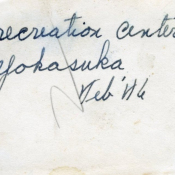 recreation center
Yokasuka
Feb '46